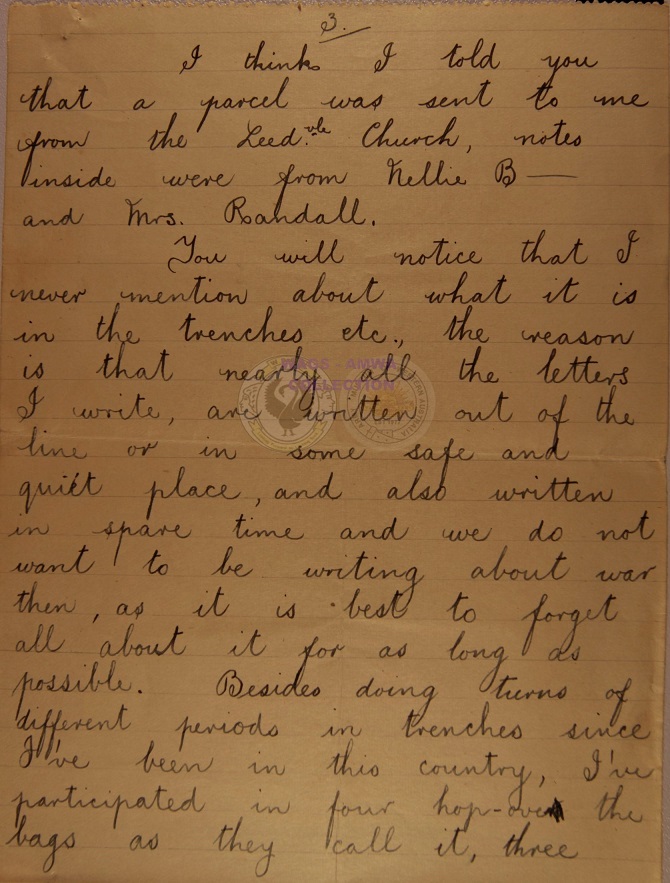 3.
I think I told you
that a parcel was sent to me
from the Leed.vle Church, notes
inside were from Nellie B—
and Mrs. Randall.
You will notice that I
never mention about what it is
in the trenches etc., the reason
is that nearly all the letters
I write, are written out of the
line or in some safe and
quiet place, and also written
in spare time and we do not
want to be writing about war
then, as it is best to forget
all about it for as long as
possible. Besides doing turns of
different periods in trenches since
I've been in this country, I've
participated in four hop-over the
bags as they call it, three
RAGS - AMWA
COLLECTION